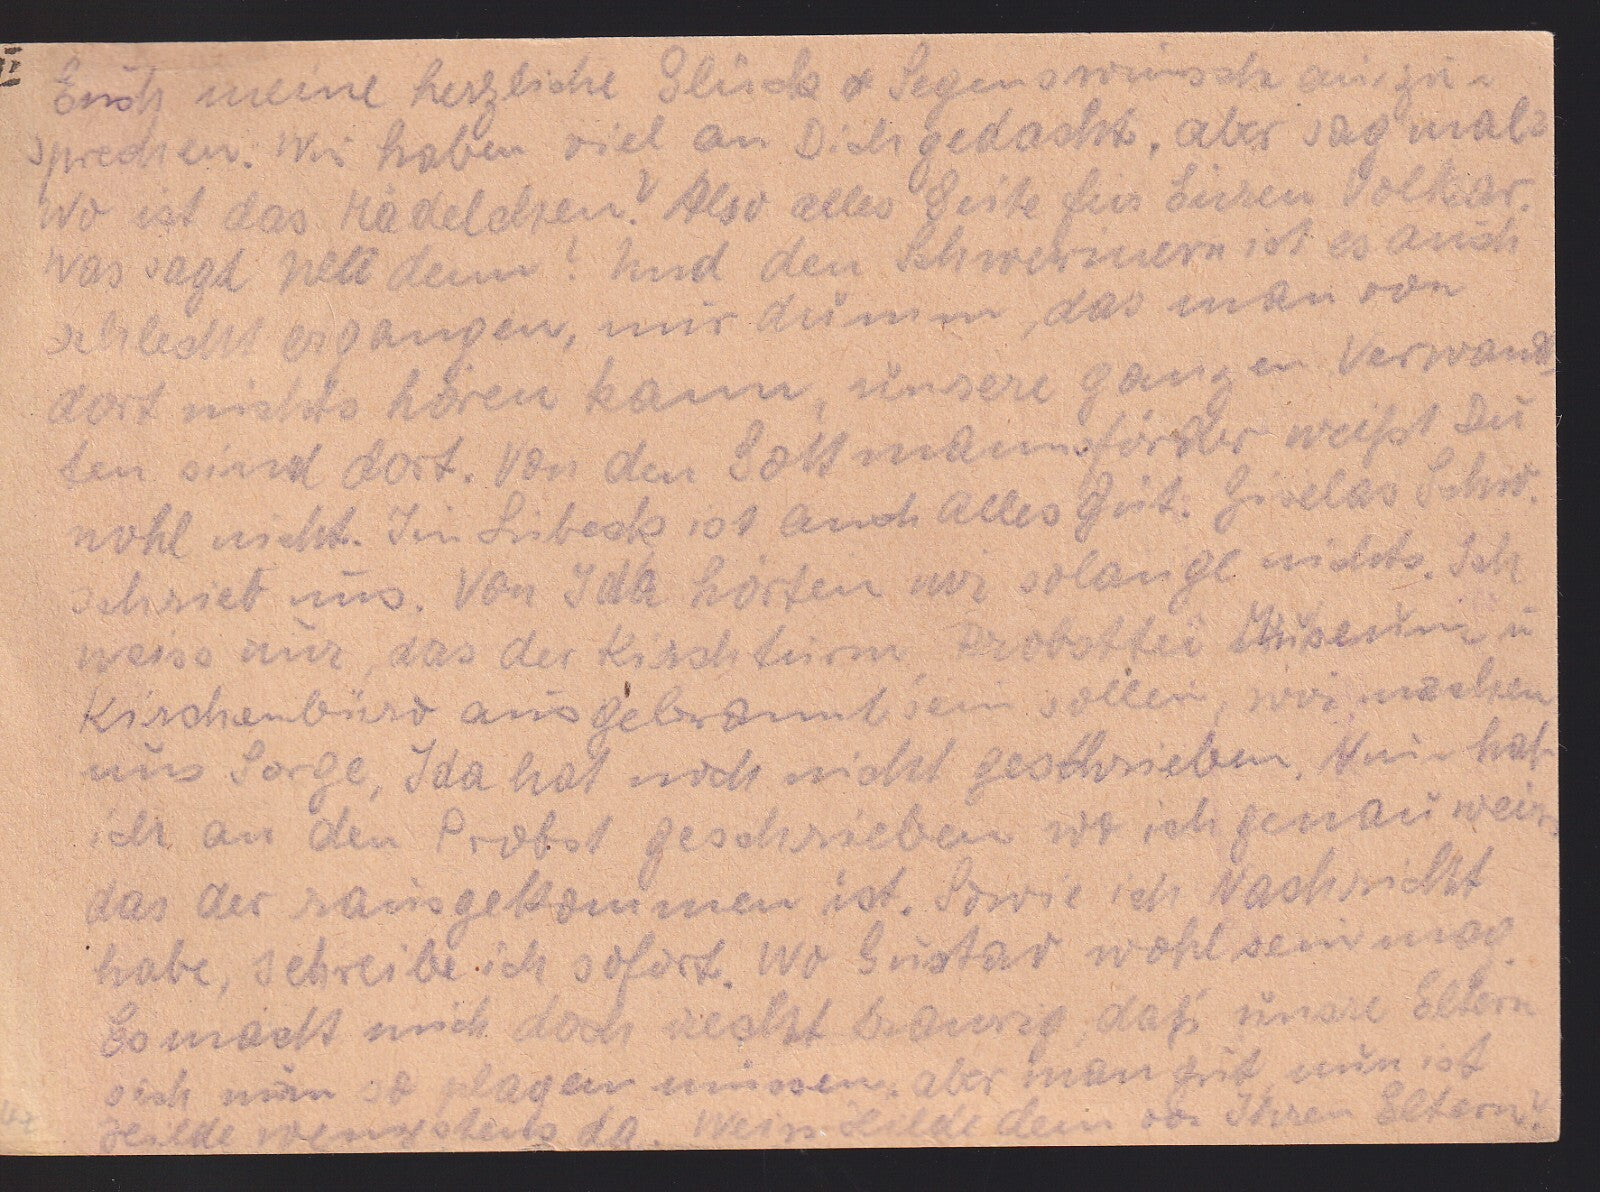 Euch meine herzliche Glück & Segenswünsche auszu-
sprechen. Wir haben viel an Dich gedacht, aber sag mal
wo ist das Mädelchen? Also alles Gute für Euren Volker.
Was sagt denn! Und den Schwerinern ist es auch
schlecht ergangen, nur dumm, das man von
dort nichts hören kann, unsere ganzen Verwand-
ten sind dort. Von den weißt Du
wohl nicht. In Lübeck ist auch alles gut. Giselas Schw.
schrieb uns. Von Ida hörten wir solange nichts. Ich
weiss nur, das der Kirchturm, Probsttei Museum u
Kirchenbüro ausgebrannt sein sollen, wir machen
uns Sorge, Ida hat noch nicht geschrieben. Nun hab
ich an den Probst geschrieben wo ich genau weiss
das der rausgekommen ist. Sowie ich Nachricht
habe, schreibe ich sofort. Wo Gustav wohl sein mag.
Es macht mich doch recht traurig, daß unsre Eltern
sich nun so plagen müssen, aber man gut, nun ist
Hilde wenigstens da. Weiss Hilde denn von Ihren Eltern?